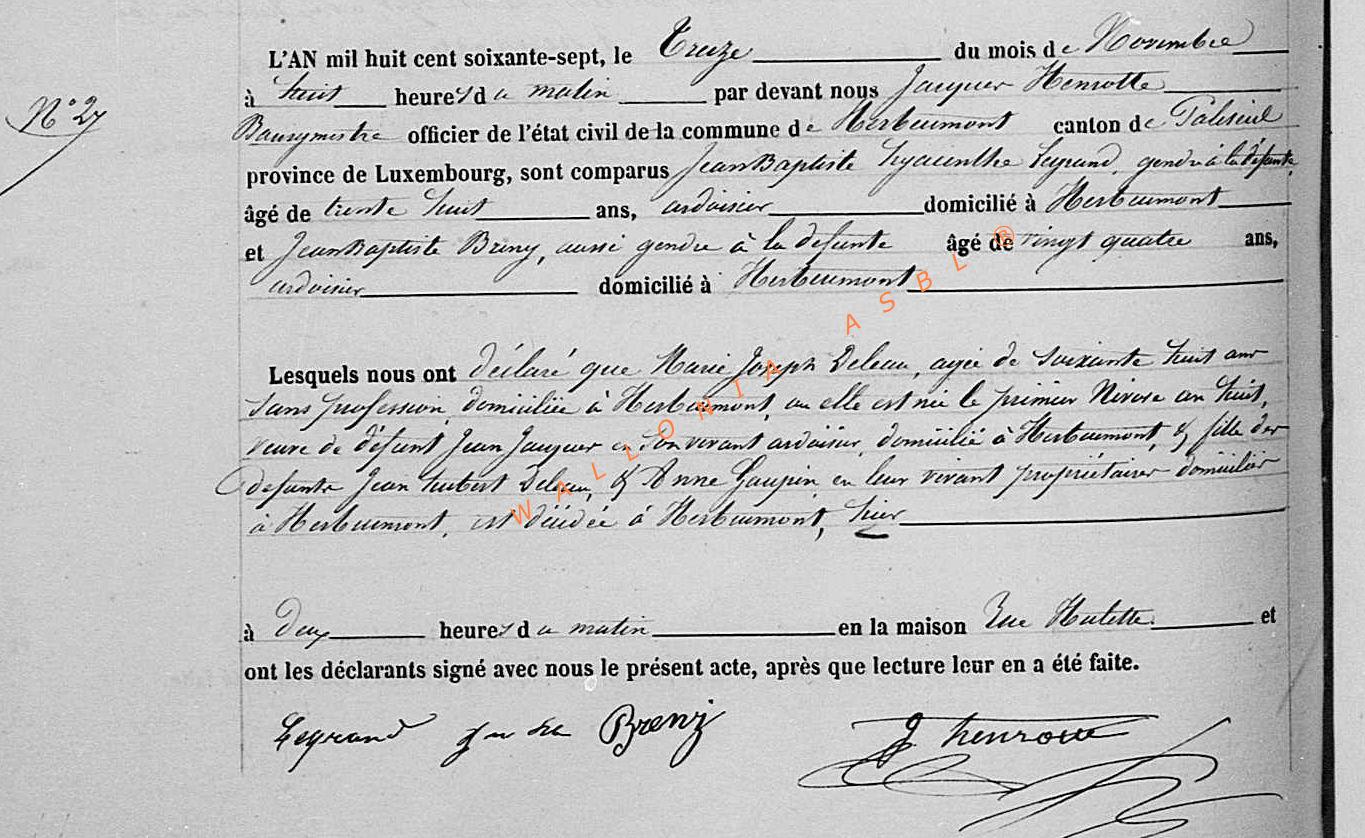 L'AN mil huit cent soixante-sept, le Treize du mois de Novembre
N° 27
à huit heures du matin par devant nous Jacques Henrotte
Bourgmestre officier de l'état civil de la commune de Herbeumont canton de Paliseul
province de Luxembourg, sont comparus Jean Baptiste Hyacinthe Legrand, gendre à la défunte,
âgé de trente huit ans, ardoisier domicilié à Herbeumont
et Jean Baptiste Breny, aussi gendre à la défunte âgé de vingt quatre ans,
ardoisier domicilié à Herbeumont
Lesquels nous ont déclaré que Marie Joseph Deleau, agée de soixante huit ans
sans profession, domiciliée à Herbeumont, ou elle est née le premier Nivose an huit,
veuve de défunt Jean Jacques en son vivant ardoisier, domicilié à Herbeumont, & fille des
défunts Jean hubert Deleau, & Anne Gaupin en leur vivant propriétaires domiciliés
à Herbeumont, est décédée à Herbeumont, hier
à deux heures du matin en la maison Rue Hulette et
ont les déclarants signé avec nous le présent acte, après que lecture leur en a été faite.
Legrand Breny J henrotte
WALLONIA ASBL ®